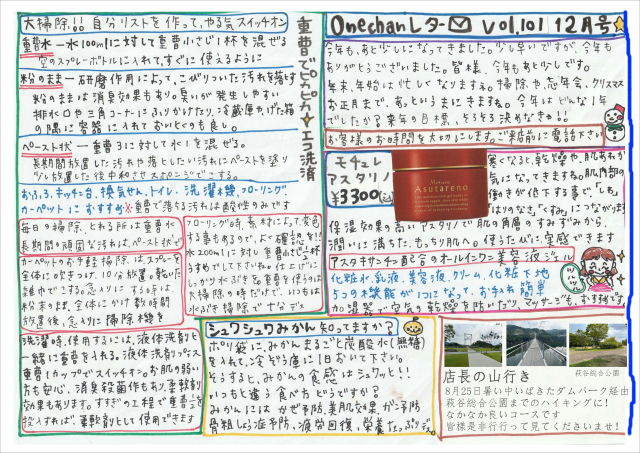 Onechanレター vol.101 12月号
今年も、あと少しになってきました。少し早いですが、今年も
ありがとうございました。皆様、今年もあと少しです。
年末、年始は忙しくなりますね。掃除や、忘年会、クリスマス
お正月まで、あっという間にきますね。今年はどんな1年
でしたか?来年の目標、そろそろ決めなきゃ!!
お客様のお時間を大切にします。ご来店前に電話下さい
モチュレ
アスタリノ
¥3300(込)
Asutareno
寒くなると、乾燥や、肌あれが
気になりますね。肌内部の
働きが低下する事で「しわ」
「はりのなさ」「くすみ」につながります
保湿効果の高いアスタリノで肌の角層のすみずみから、
潤いに満ちた、もっちり肌へ。使うたびに、実感できます
アスタキサンチン配合のオールインワン美容液ジェル
化粧水、乳液、美容液、クリーム、化粧下地
5つの機能が1つになって、お手入れ簡単
加湿器で空気の乾燥を防いだり、マッサージも、おすすめです。
大掃除!!自分リストを作って、やる気スイッチオン
重曹水ー水100mlに対して重曹小さじ1杯を混ぜる
空のスプレーボトルに入れて、すぐに使えるように
粉のままー研磨作用によって、こびりついた汚れを落とす
粉のままは消臭効果もあり。臭いが発生しやすい
排水口や三角コーナーにふりかけたり、冷蔵庫やげた箱
の隅に容器に入れておいとくのも良い。
ペースト状ー重曹3に対して水1を混ぜる。
長期間放置した汚れや落としたい汚れにペーストを塗り
少し放置した後やわらかスポンジでこする。
おふろ、キッチン台、換気せん、トイレ、洗濯機、フローリング
カーペットにおすすめ※重曹で落ちる汚れは酸性のみです
重曹でピカピカ エコ洗済
毎日の掃除、とれる所は重曹水
長期間の頑固な汚れは、ペースト状で
カーペットのお手軽掃除は、スプレーを
全体に吹きつけ、10分放置。乾いた
雑巾でこする。念入りにする時は、
粉末のまま、全体にかけ数時間
放置後、念入りに掃除機を
フローリングの時、素材によって変色
する事もあるので、よく確認を!!
水200mlに対し重曹小さじ1杯
うすめでして下さいね。仕上げに
しっかり水ぶきを。重曹を使うのは
大掃除の時だけで、いつもは
水ぶき掃除で十分です
洗濯時、使用するには、液体洗剤と
一緒に重曹を入れる。液体洗剤+
重曹1カップでスイッチオン。お肌の弱い
方も安心、消臭殺菌作用もあり、柔軟剤
効果もあります。すすぎの工程で重曹を
投入すれば、柔軟剤として使用できます
シュワシュワみかん知ってますか?
ポリ袋に、みかんまるごと炭酸水(無糖)
を入れて、冷ぞう庫に1日おいて下さい。
そうすると、みかんの食感はシュワッと!!
いつもと違う食べ方どうですか?
みかんには かぜ予防、美肌効果、がん予防
骨粗しょう症予防、疲労回復、栄養たっぷりデス。
萩谷総合公園
店長の山行き
8月25日暑い中いばきたダムパーク経由
萩谷総合公園までのハイキングに!
なかなか良いコースです
皆様是非行って見てくださいませ!